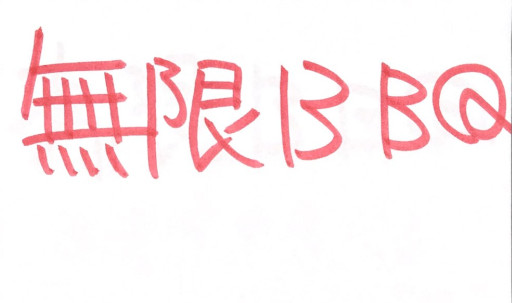 無限BBQ